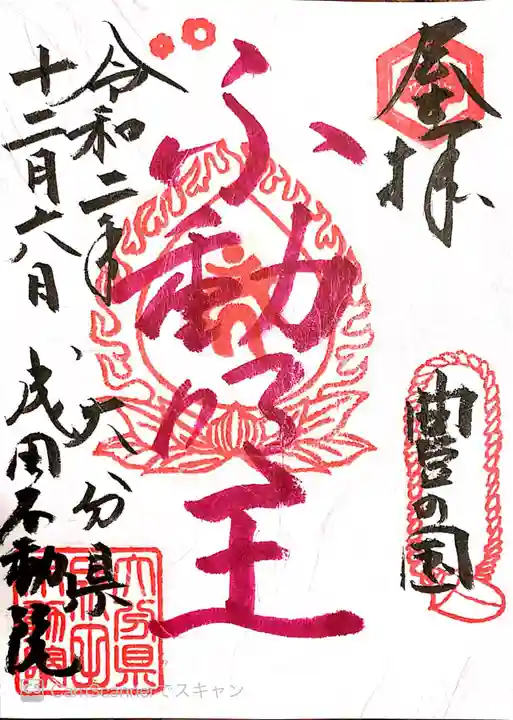 奉拝
豊の国
不動明王
令和二年
十二月六日
大分県
成田不動院
CamScannerでスキャン